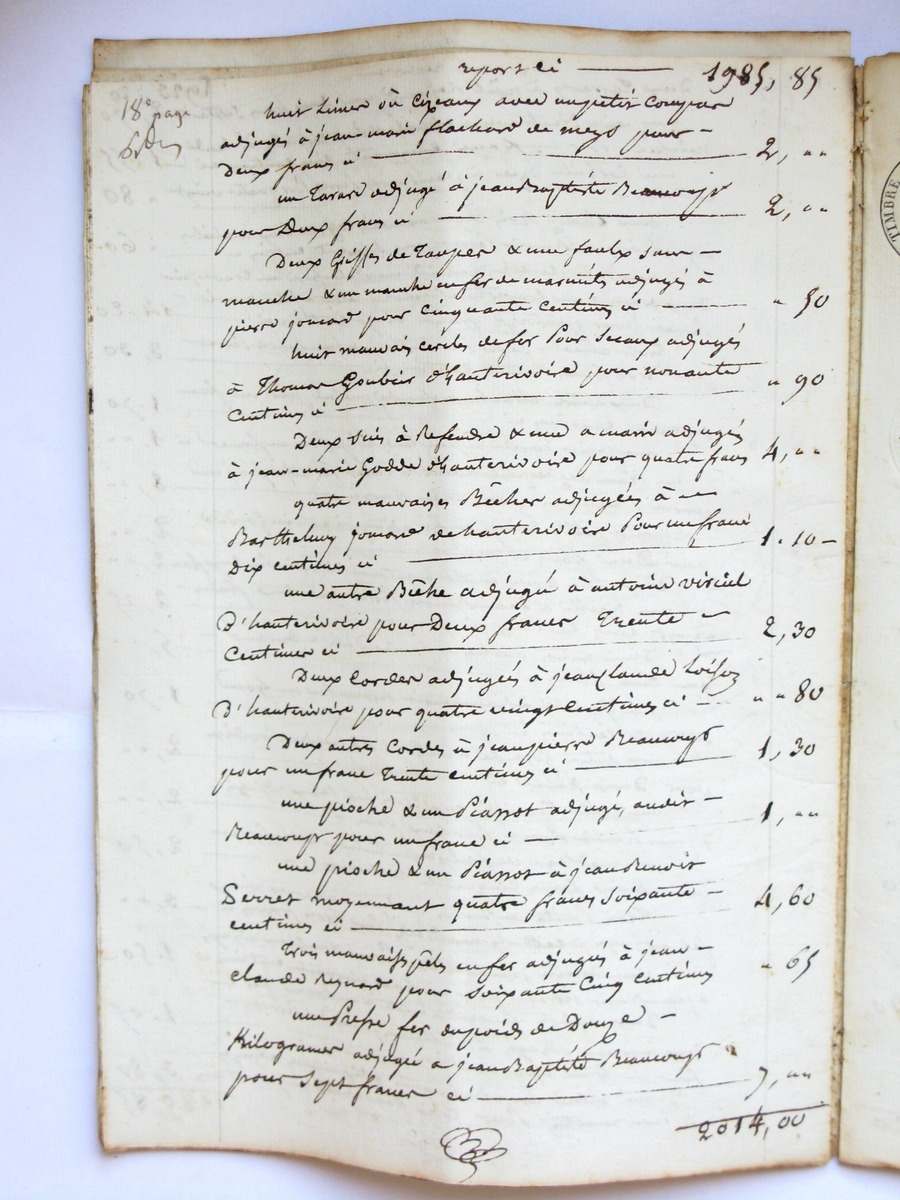 report ci — 1985, 85
18e page
huit Limes ou Cizeaux avec un petit Compas
adjugés à jean-marie flachard de meys pour —
Deux francs ci — 2, ""
un Tarare adjugé à jean Baptiste Beaucoup
pour Deux francs ci — 2, ""
Deux Griffes de Taupes & une faulx sans —
manche & un manche en fer de marmite adjugés à
pierre joucard pour Cinquante Centimes ci — " 50
huit mauvais cercles de fer Pour Seaux adjugés
à Thomas Goubier d'hauterivoire pour nonante
Centimes ci — " 90
Deux Scies à Refendre & une a main adjugés
à jean-marie Godde d'hauterivoire pour quatre francs 4, ""
quatre mauvaises Bêches adjugées à —
Barthelmy joucard de hauterivoire Pour un franc
Dix centimes ci — 1. 10 —
une autre Bêche adjugé à antoine viriel
D'hauterivoire pour Deux francs Trente —
Centimes ci — 2, 30
Deux Cordes adjugées à jean Claude Loison
D'hauterivoire pour quatre vingt Centimes ci — " " 80
Deux autres Cordes à jean pierre Beaucoup
pour un franc Trente centimes ci — 1, 30
une pioche & un Piassot adjugé, audit —
Beaucoup pour un franc ci — 1, ""
une pioche & un Piassot à jean Benoit
Serret moyennant quatre francs Soixante —
centimes ci — 4, 60
Trois mauvaises pêles en fer adjugés à jean —
claude Reynard pour Soixante Cinq Centimes " 65
une Presse fer du poids de Douze —
Kilogrames adjugée a jean Baptiste Beaucoup
pour Sept francs ci — 7, ""
2014, 00
TIMBRE